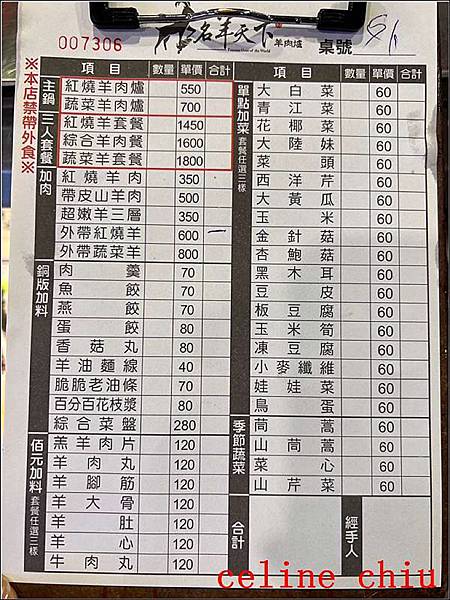 007306
名羊天下 羊肉爐 桌號
※本店禁帶外食※
項目 數量 單價 合計
主鍋
紅燒羊肉爐 550
蔬菜羊肉爐 700
三人套餐
紅燒羊套餐 1450
綜合羊肉餐 1600
蔬菜羊套餐 1800
加肉
紅燒羊肉 350
帶皮山羊肉 500
超嫩羊三層 350
外帶紅燒羊 600 一
外帶蔬菜羊 800
銅版加料
肉羹 70
魚餃 70
燕餃 70
蛋餃 80
香菇丸 80
羊油麵線 40
脆脆老油條 70
百分百花枝漿 80
綜合菜盤 280
佰元加料 套餐任選三樣
羔羊肉片 120
羊肉丸 120
羊腳筋 120
羊大骨 120
羊肚 120
羊心 120
牛肉丸 120
項目 數量 單價 合計
單點加菜 套餐任選三樣
大白菜 60
青江菜 60
花椰菜 60
大陸妹 60
菜頭 60
西洋芹 60
大黃瓜 60
玉米 60
金針菇 60
杏鮑菇 60
黑木耳 60
豆皮 60
板豆腐 60
玉米筍 60
凍豆腐 60
小麥纖維 60
娃娃菜 60
鳥蛋 60
季節蔬菜
茼蒿 60
山茼蒿 60
菜心 60
山芹菜 60
合計
經手人
celine chiu